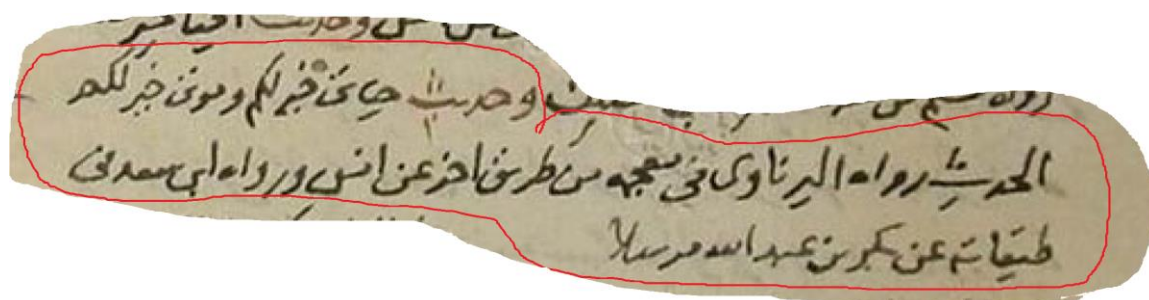 وحديث
رواه مسلم من وحديث حياتى خير لكم وموتى خير لكم
الحديث رواه البرناوى فى معجمه من طريق اخر عن انس ورواه ابن سعد فى
طبقاته عن بكر بن عبد الله مرسلا